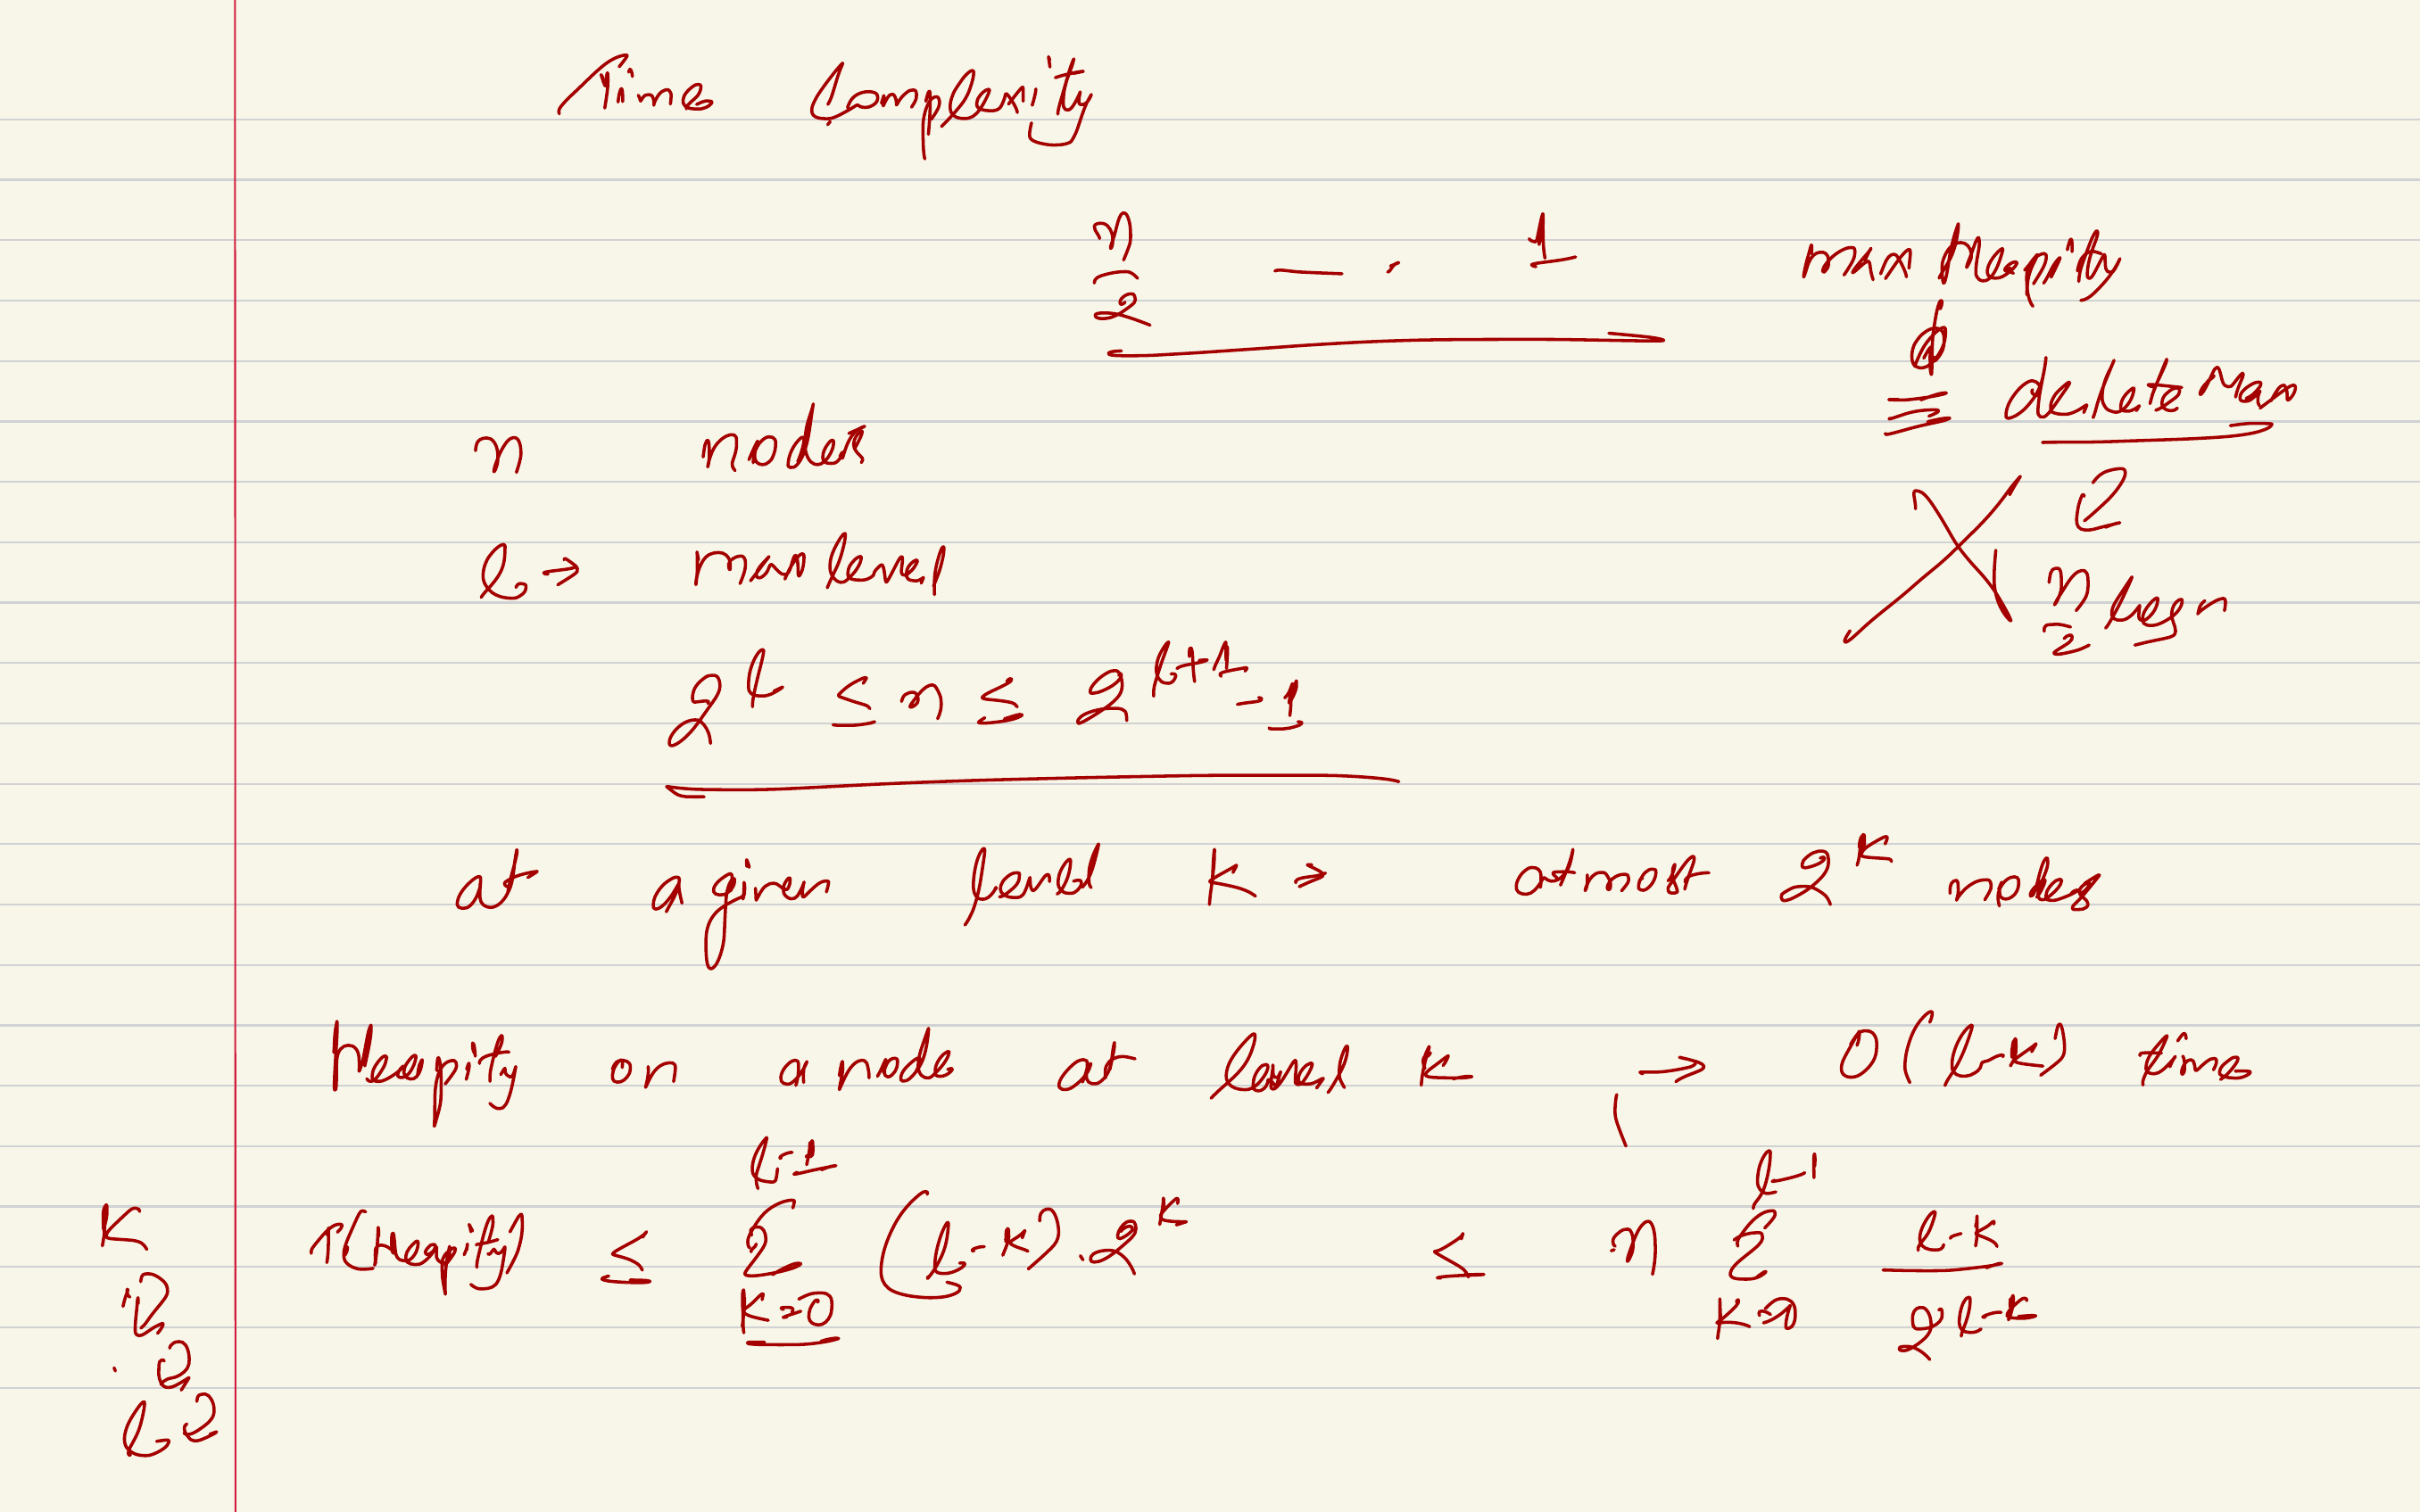 Time Complexity
n/2 — . 1
max Heapify
deleteMax
n/2 log n
n nodes
l → max level
2^l ≤ n ≤ 2^(l+1) - 1
at a given level k → atmost 2^k nodes
Heapify on a node at level k → O(l-k) time
K
l
T(Heapify) ≤ Σ_{k=0}^{l-1} (l-k).2^k ≤ n Σ_{k=0}^{l-1} (l-k)/2^(l-k)